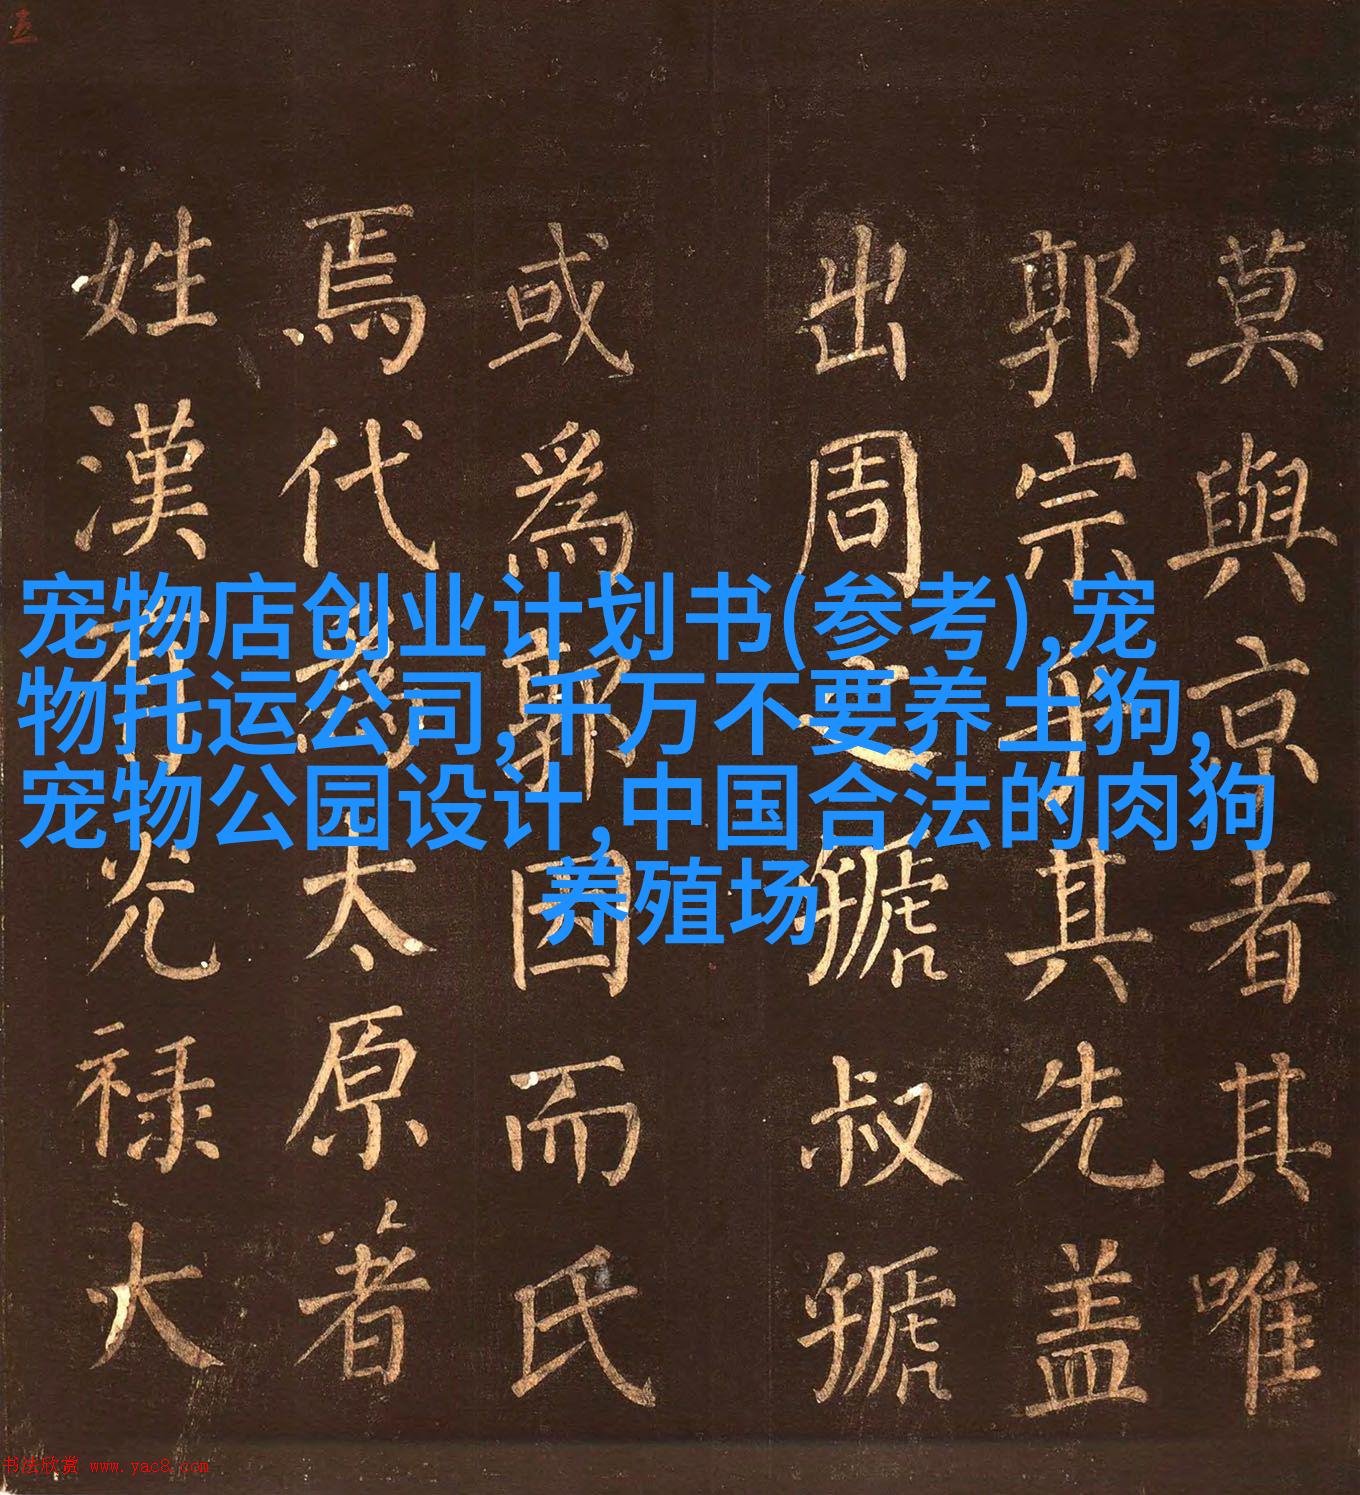 莫與京者其唯
郭宗乎其先盖
出周之虢叔虢
或為郭因而氏
焉代為太原著
姓漢有光禄大
宠物店创业计划书(参考),宠
物托运公司,千万不要养土狗,
宠物公园设计,中国合法的肉狗
养殖场
书法欣赏 www.yac8.com